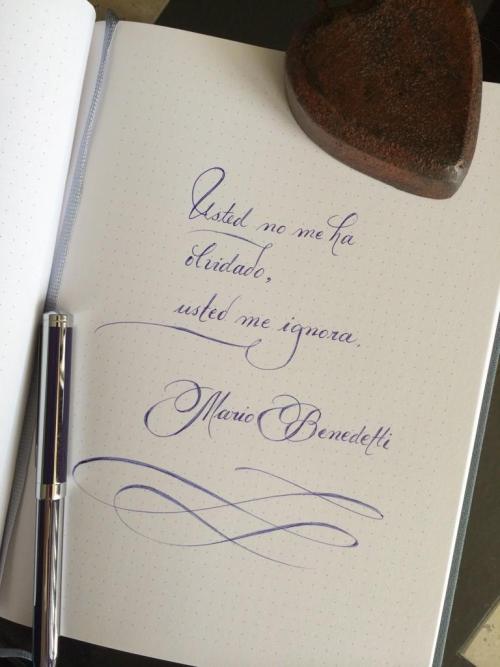 Usted no me ha
olvidado,
usted me ignora.
Mario Benedetti